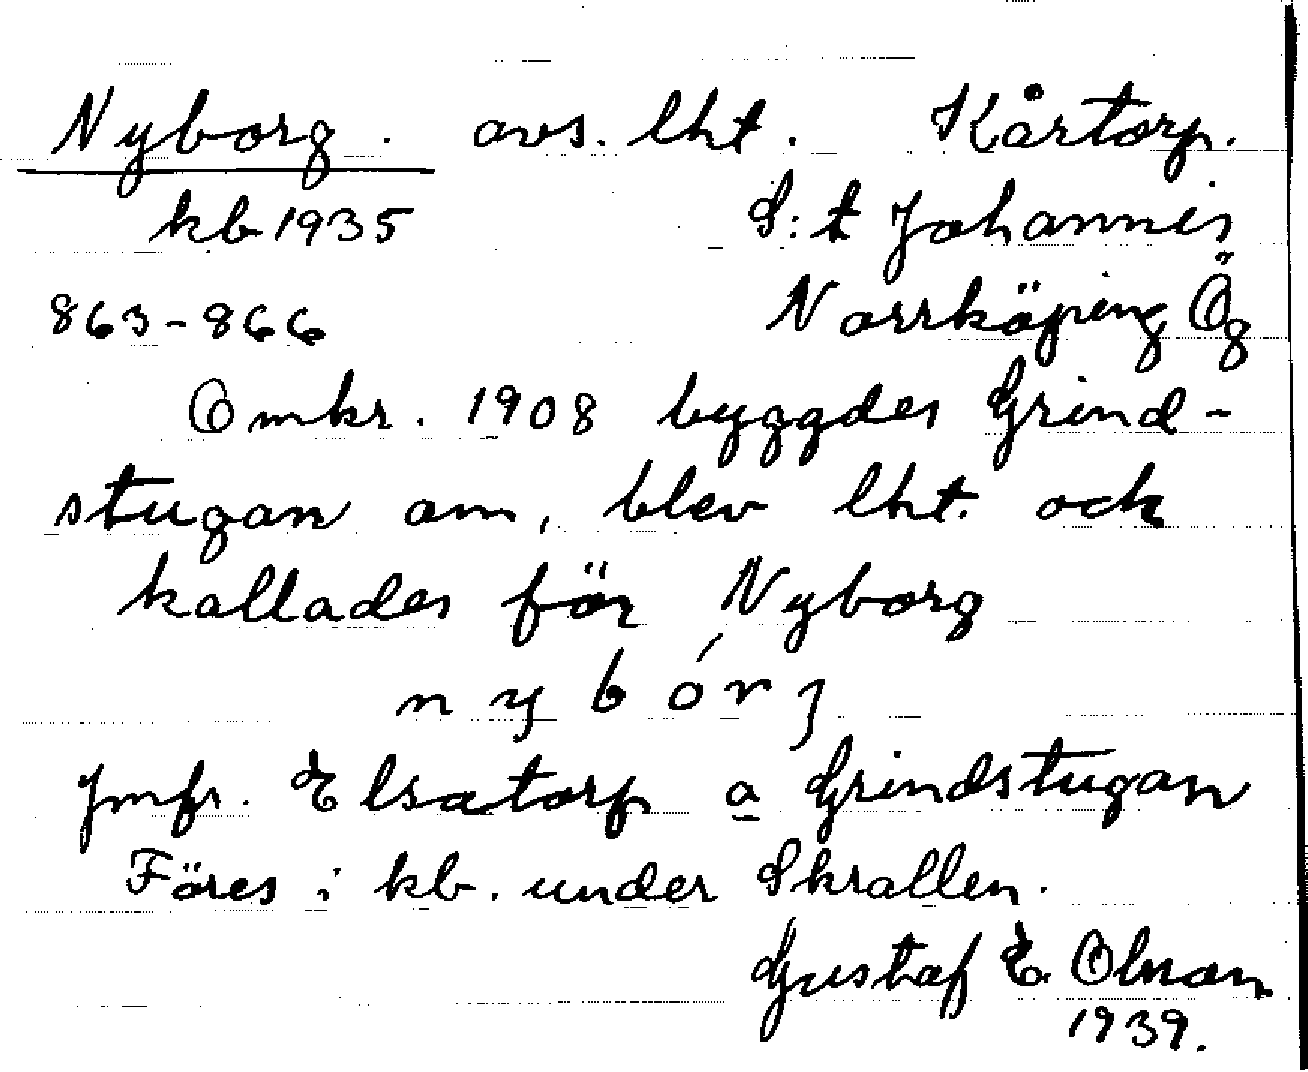 Nyborg. avs. lht. Kårtorp.
kb 1935 S:t Johannes
863-866 Norrköping Ög
Omkr. 1908 byggdes Grind-
stugan om, blev lht. och
kallades för Nyborg
nybórj
Jmfr. Elsatorp o Grindstugan
Föres i kb. under Skrallen.
Gustaf E. Olson
1939.